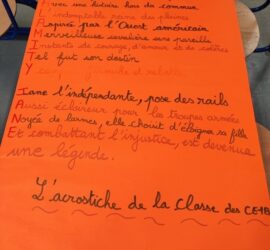 Avec une histoire hors du commun
L'indomptable reine des plaines
Inspirée par l'Ouest américain
Merveilleuse cavalière sans pareille
Instants de courage, d'amour et de colères
Tel fut son destin
Y
Jane l'indépendante, pose des rails
Aussi éclaireur pour les troupes armées
Noyée de larmes, elle choisit d'éloigner sa fille
Et combattant l'injustice, est devenue
une légende.
L'acrostiche de la Classe des CE1B